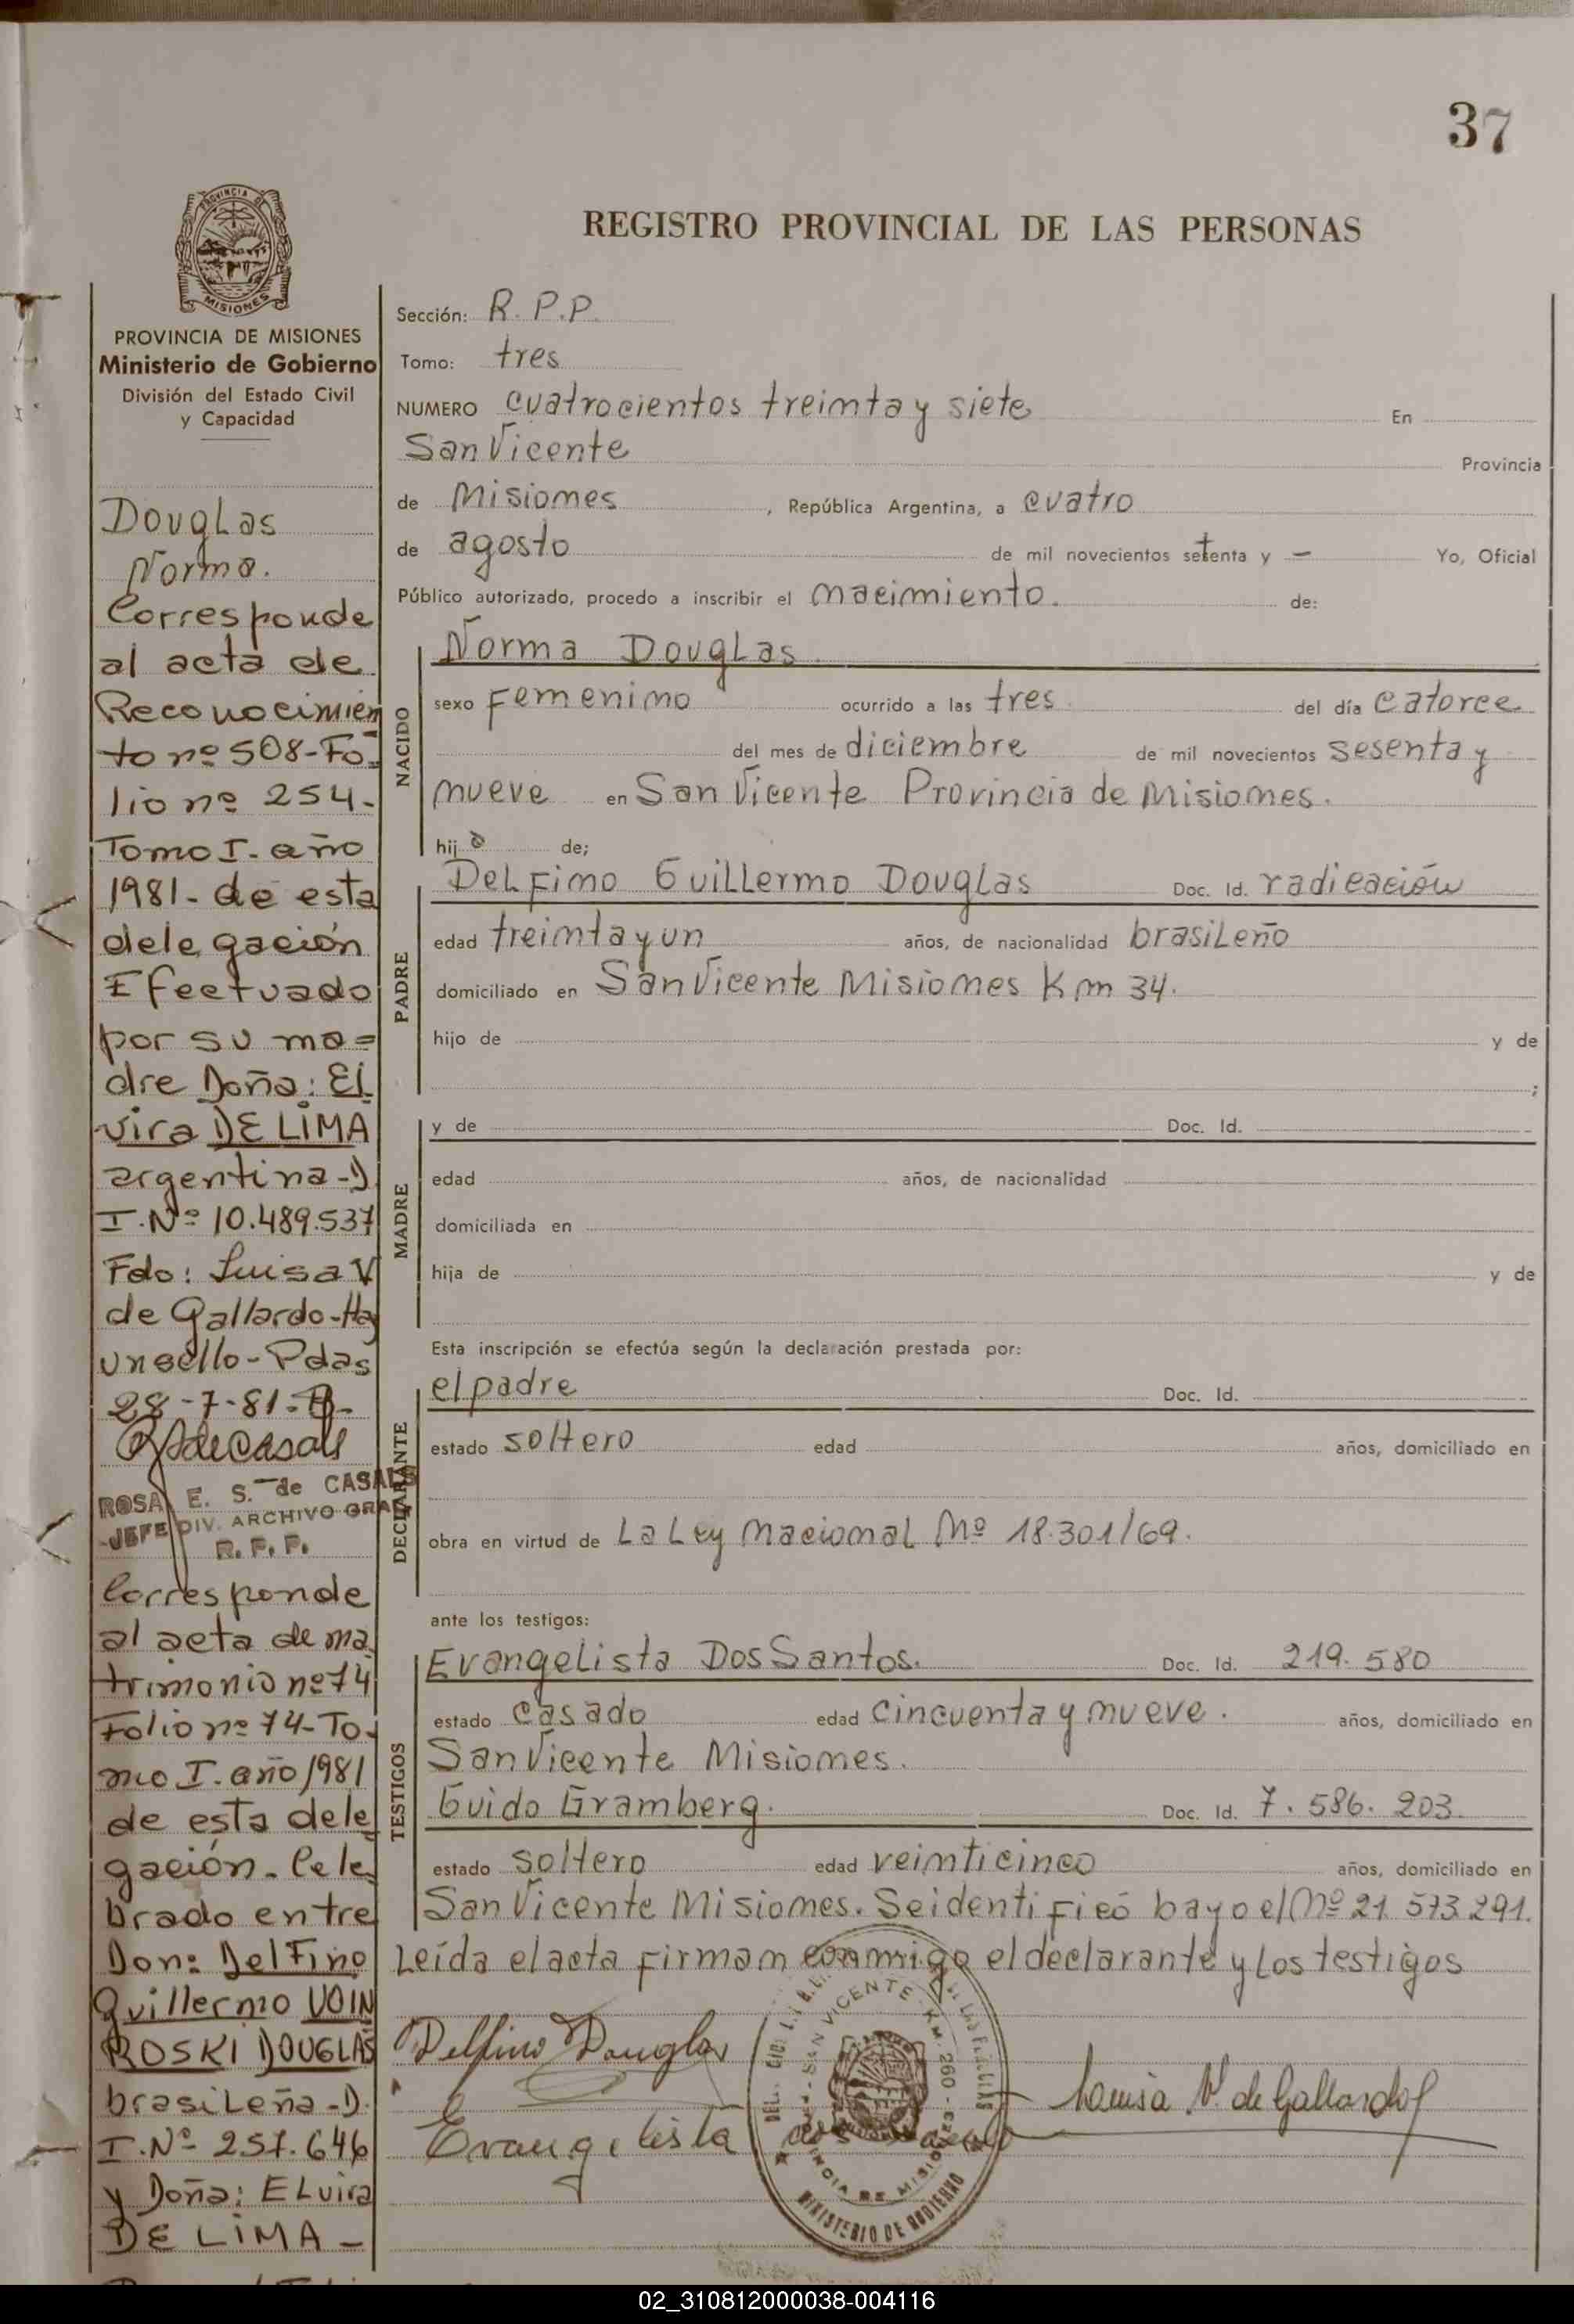 37
PROVINCIA DE
MISIONES
PROVINCIA DE MISIONES
Ministerio de Gobierno
División del Estado Civil
y Capacidad
Douglas
Norma.
Corresponde
al acta de
Reconocimien
to nº 508-Fo=
lio nº 254-
Tomo I- año
1981- de esta
delegación
Efectuado
por su ma=
dre Doña: El
vira DE LIMA
argentina-D
I.Nº 10.489.537
Fdo: Luisa V
de Gallardo-Hay
un sello-Pdas
28-7-81-
ROSA E. S. de CASALS
JEFE DIV. ARCHIVO GRAL
R. P. P.
Corresponde
al acta de ma
trimonio nº 74
Folio nº 74-To-
mo I. año 1981
de esta dele
gación- Cele
brado entre
Don: Delfino
Guillermo VOIN
ROSKI DOUGLAS
brasileña-D.
I.Nº 257.646
y Doña: ELvira
DE LIMA-
REGISTRO PROVINCIAL DE LAS PERSONAS
Sección: R. P. P.
Tomo: tres
NUMERO cuatrocientos treinta y siete En
San Vicente Provincia
de Misiones, República Argentina, a cuatro
de agosto de mil novecientos setenta y — Yo, Oficial
Público autorizado, procedo a inscribir el nacimiento. de:
NACIDO
Norma Douglas.
sexo femenino ocurrido a las tres del día catorce
del mes de diciembre de mil novecientos sesenta y
nueve en San Vicente Provincia de Misiones.
hija de;
PADRE
Delfino Guillermo Douglas Doc. Id. radicación
edad treinta y un años, de nacionalidad brasileño
domiciliado en San Vicente Misiones Km 34.
hijo de y de
;
MADRE
y de Doc. Id.
edad años, de nacionalidad
domiciliada en
hija de y de
Esta inscripción se efectúa según la declaración prestada por:
DECLARANTE
el padre Doc. Id.
estado soltero edad años, domiciliado en
obra en virtud de La Ley Nacional Nº 18.301/69.
ante los testigos:
TESTIGOS
Evangelista Dos Santos. Doc. Id. 219.580
estado casado edad cincuenta y nueve. años, domiciliado en
San Vicente Misiones.
Guido Gramberg. Doc. Id. 7.586.203.
estado soltero edad veinticinco años, domiciliado en
San Vicente Misiones. Se identificó bayo el Nº 21.573.291.
Leída el acta firman conmigo el declarante y los testigos
Delfino Douglas
Evangelista dos
Louisa V. de Gallardo
SAN VICENTE - KM. 260
MINISTERIO DE GOBIERNO
02_310812000038-004116